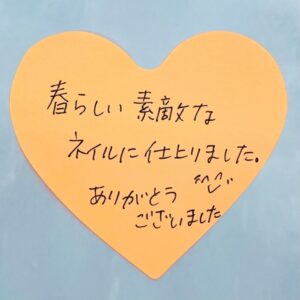 春らしい 素敵な
ネイルに仕上りました。
^^
ありがとう
ございました